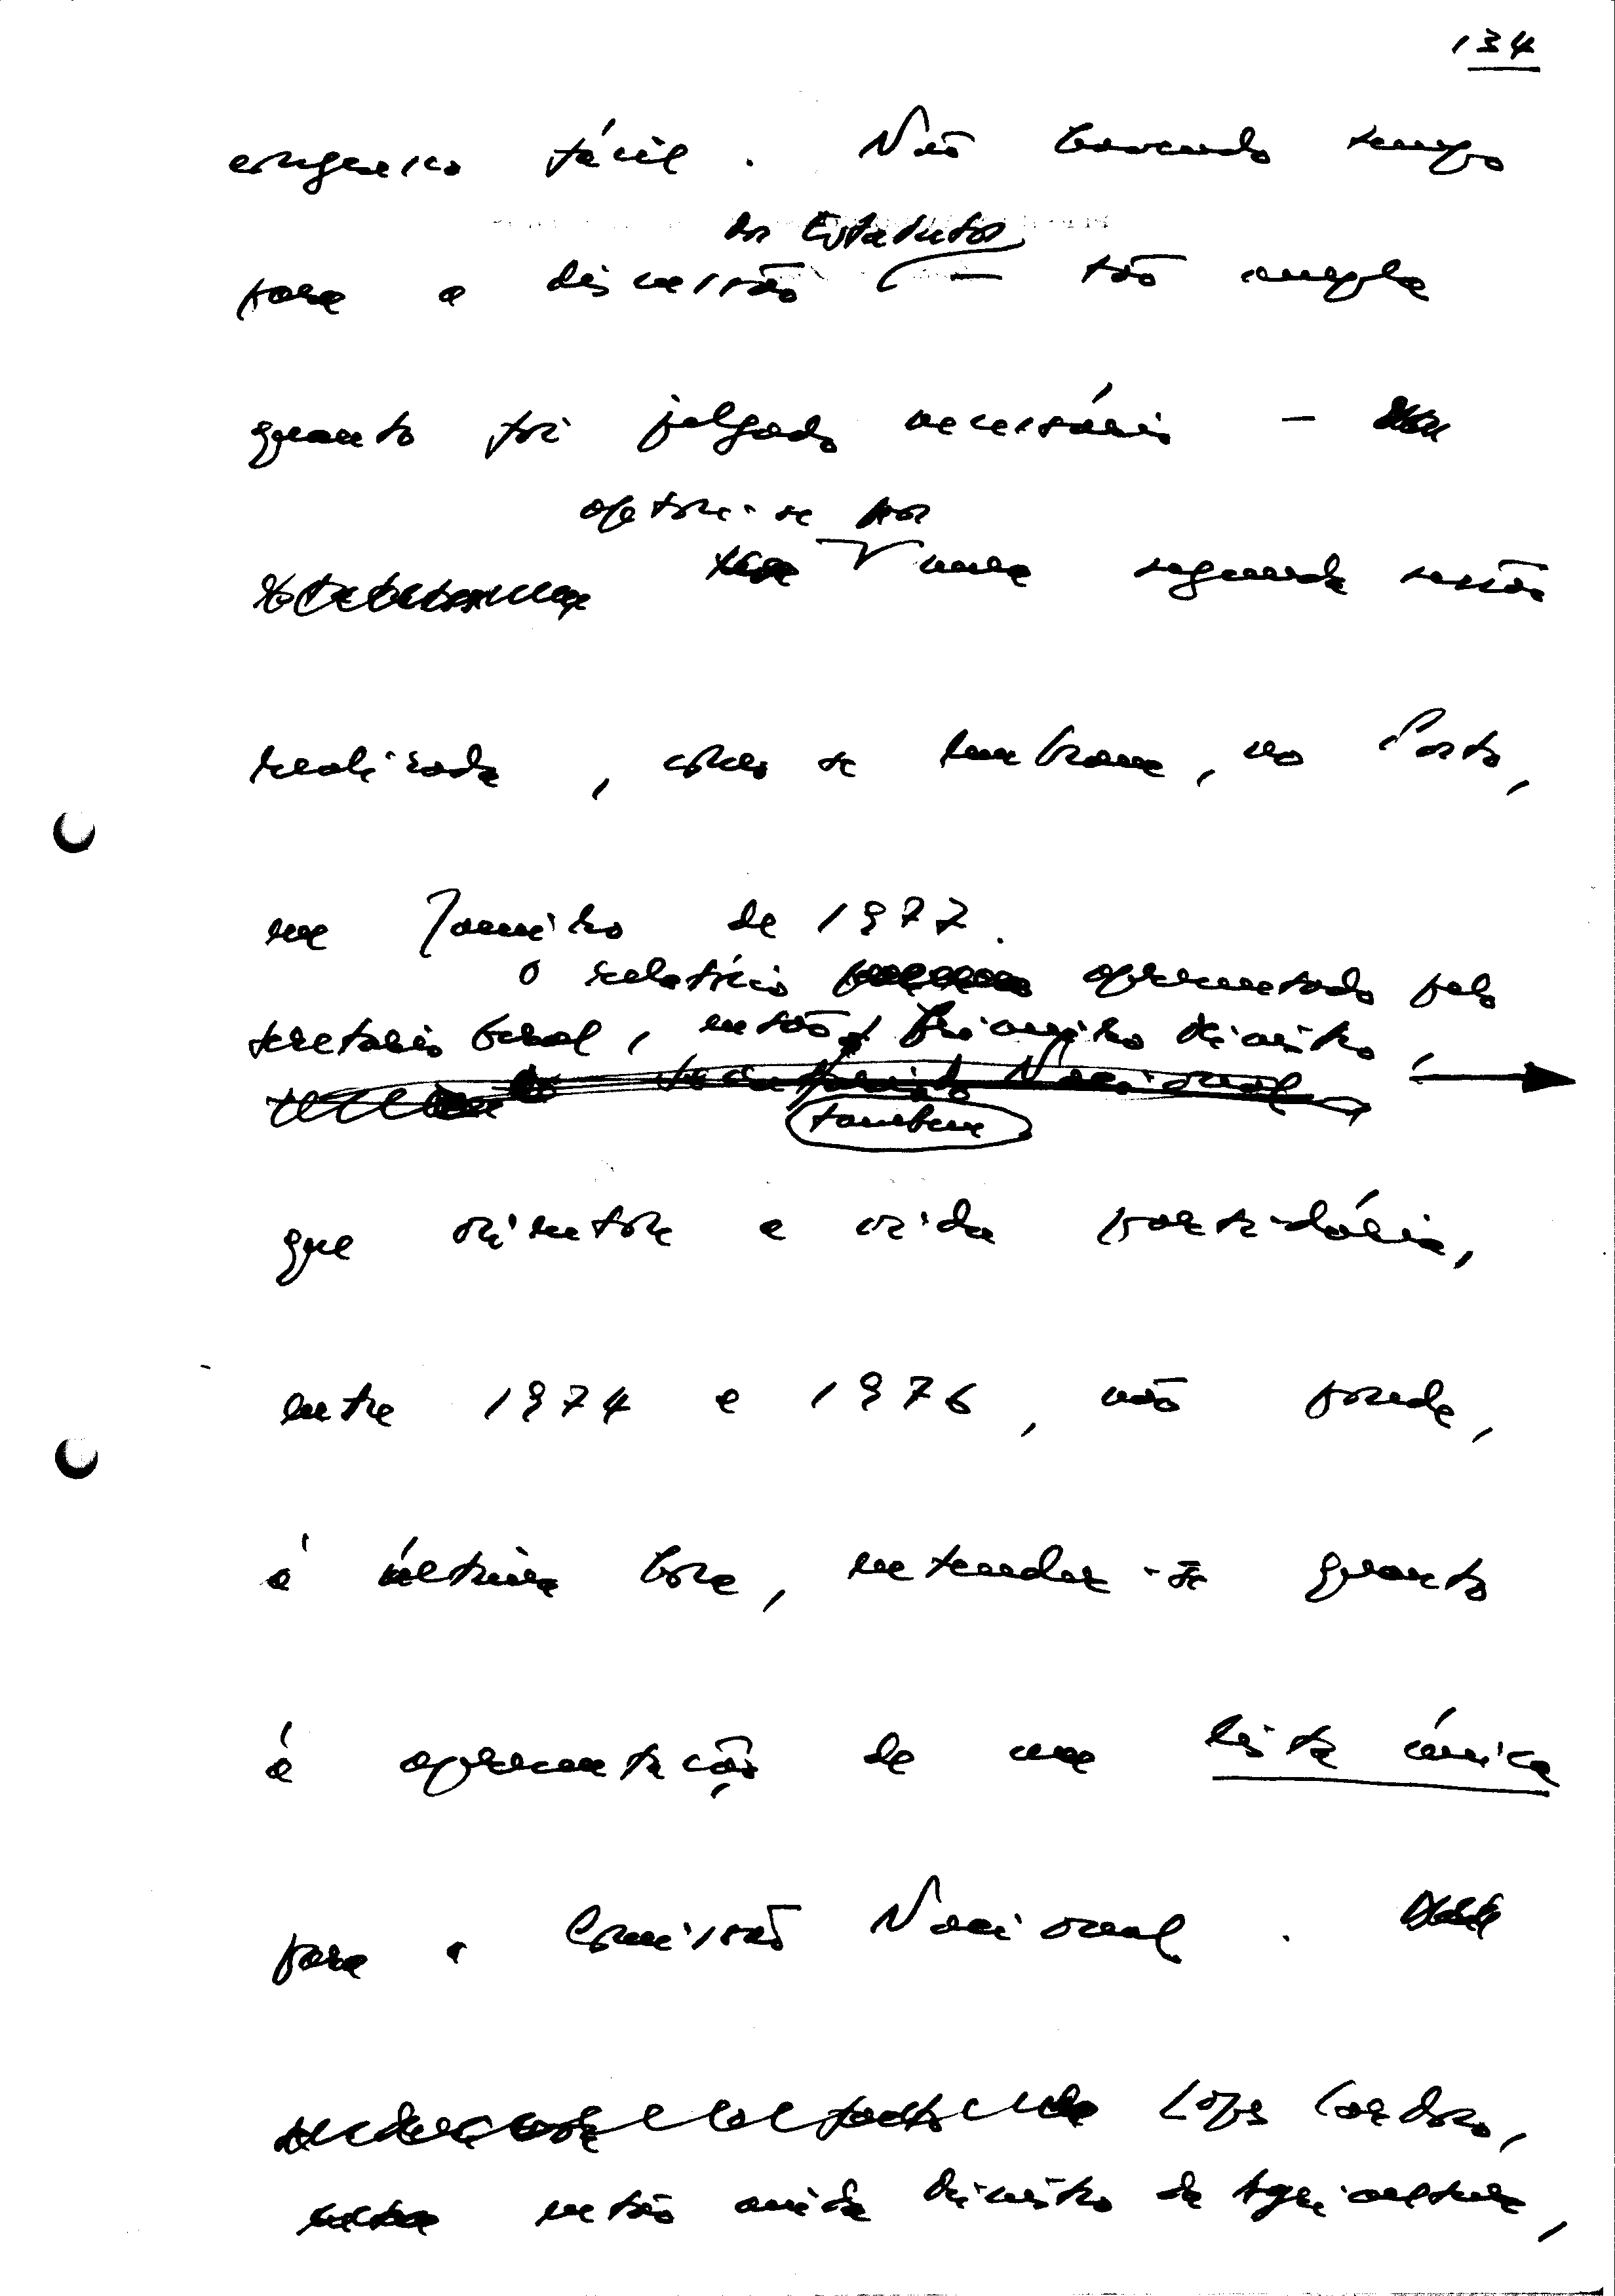 134
fácil. Não havendo tempo
dos Estatutos
para a discussão — tão ampla
quanto foi julgado necessário —
optou-se por
uma segunda sessão
realizada, como se lembram, no Porto,
em Janeiro de 1977.
O relatório apresentado pelo
secretário geral, então também Primeiro Ministro,
que orientou a vida partidária,
entre 1974 e 1976, não pôde,
à última hora, entender-se quanto
à apresentação de uma lista única
para a Comissão Nacional.
Lopes Cardoso,
então ainda Ministro da Agricultura,